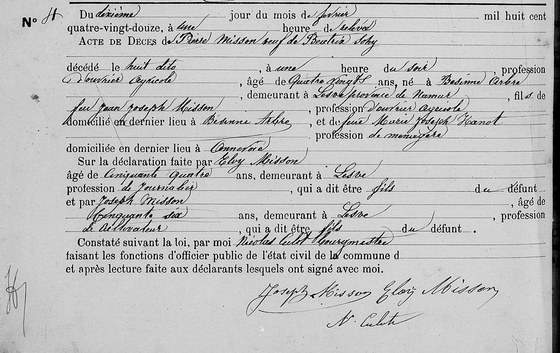 Du dixième jour du mois de février mil huit cent
N° 4 quatre-vingt-douze, à une heure de relevée
ACTE DE DÉCÈS de Pierre Misson veuf de Beatrix Sohy
décédé le huit dito, à une heure du soir, profession
D'ouvrier Agricole, âgé de Quatre Vingt ans, né à Besinne Arbre
, demeurant à Lesve province de Namur, fils de
feu Jean Joseph Misson, profession D'ouvrier Agricole
domicilié en dernier lieu à Besinne Arbre, et de feue Marie Joseph Hanot
profession de menagère
domiciliée en dernier lieu à Annevoie
Sur la déclaration faite par Eloy Misson
âgé de Cinquante Quatre ans, demeurant à Lesve
profession de Journalier, qui a dit être fils du défunt
et par Joseph Misson, âgé de
Cinquante six ans, demeurant à Lesve, profession
de Cultivateur, qui a dit être fils du défunt.
Constaté suivant la loi, par moi Nicolas Culot Bourgmestre
faisant les fonctions d'officier public de l'état civil de la commune d
et après lecture faite aux déclarants lesquels ont signé avec moi.
Joseph Misson Eloy Misson
N. Culot